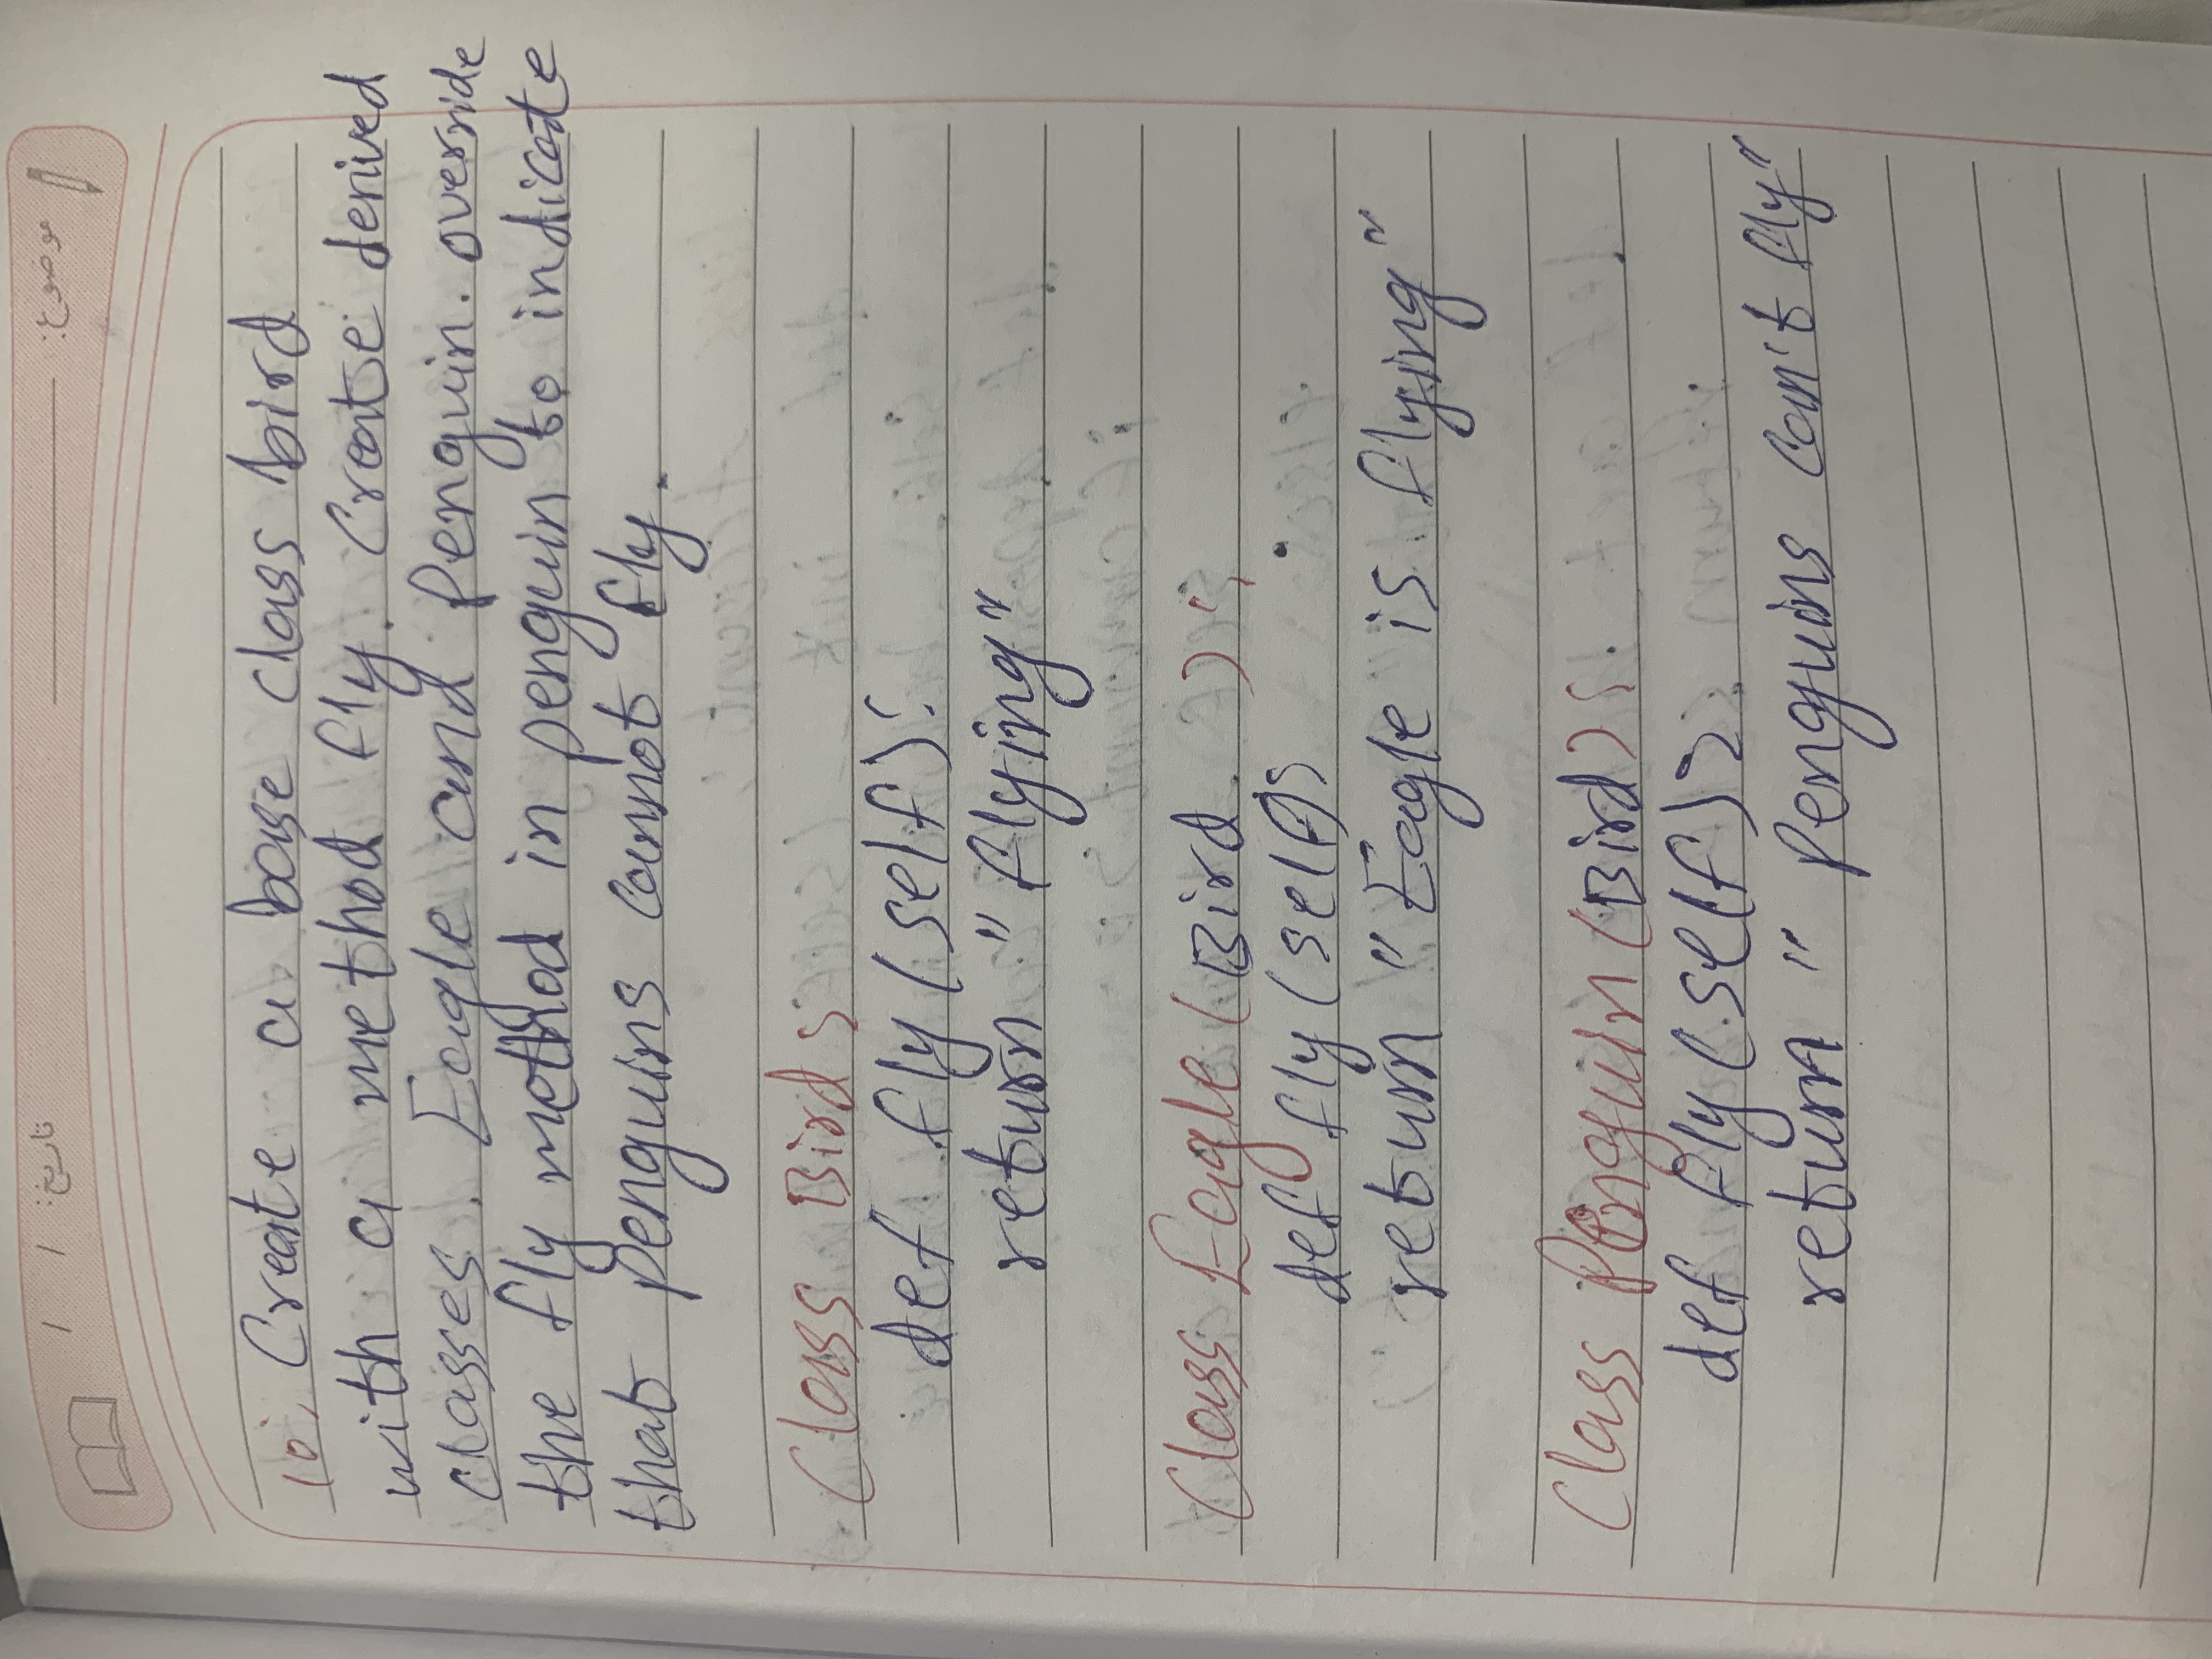 موضوع: تاریخ: / /
10. Create a base class bird
with a method fly. Create derived
classes. Eagle and Penguin. override
the fly method in penguin to indicate
that penguins cannot fly.
Class Bird:
def fly (self):
return "flying"
Class Eagle (Bird ):
def fly (self):
return "Eagle is flying"
Class Penguin (Bird):
def fly (self):
return "Penguins can't fly"